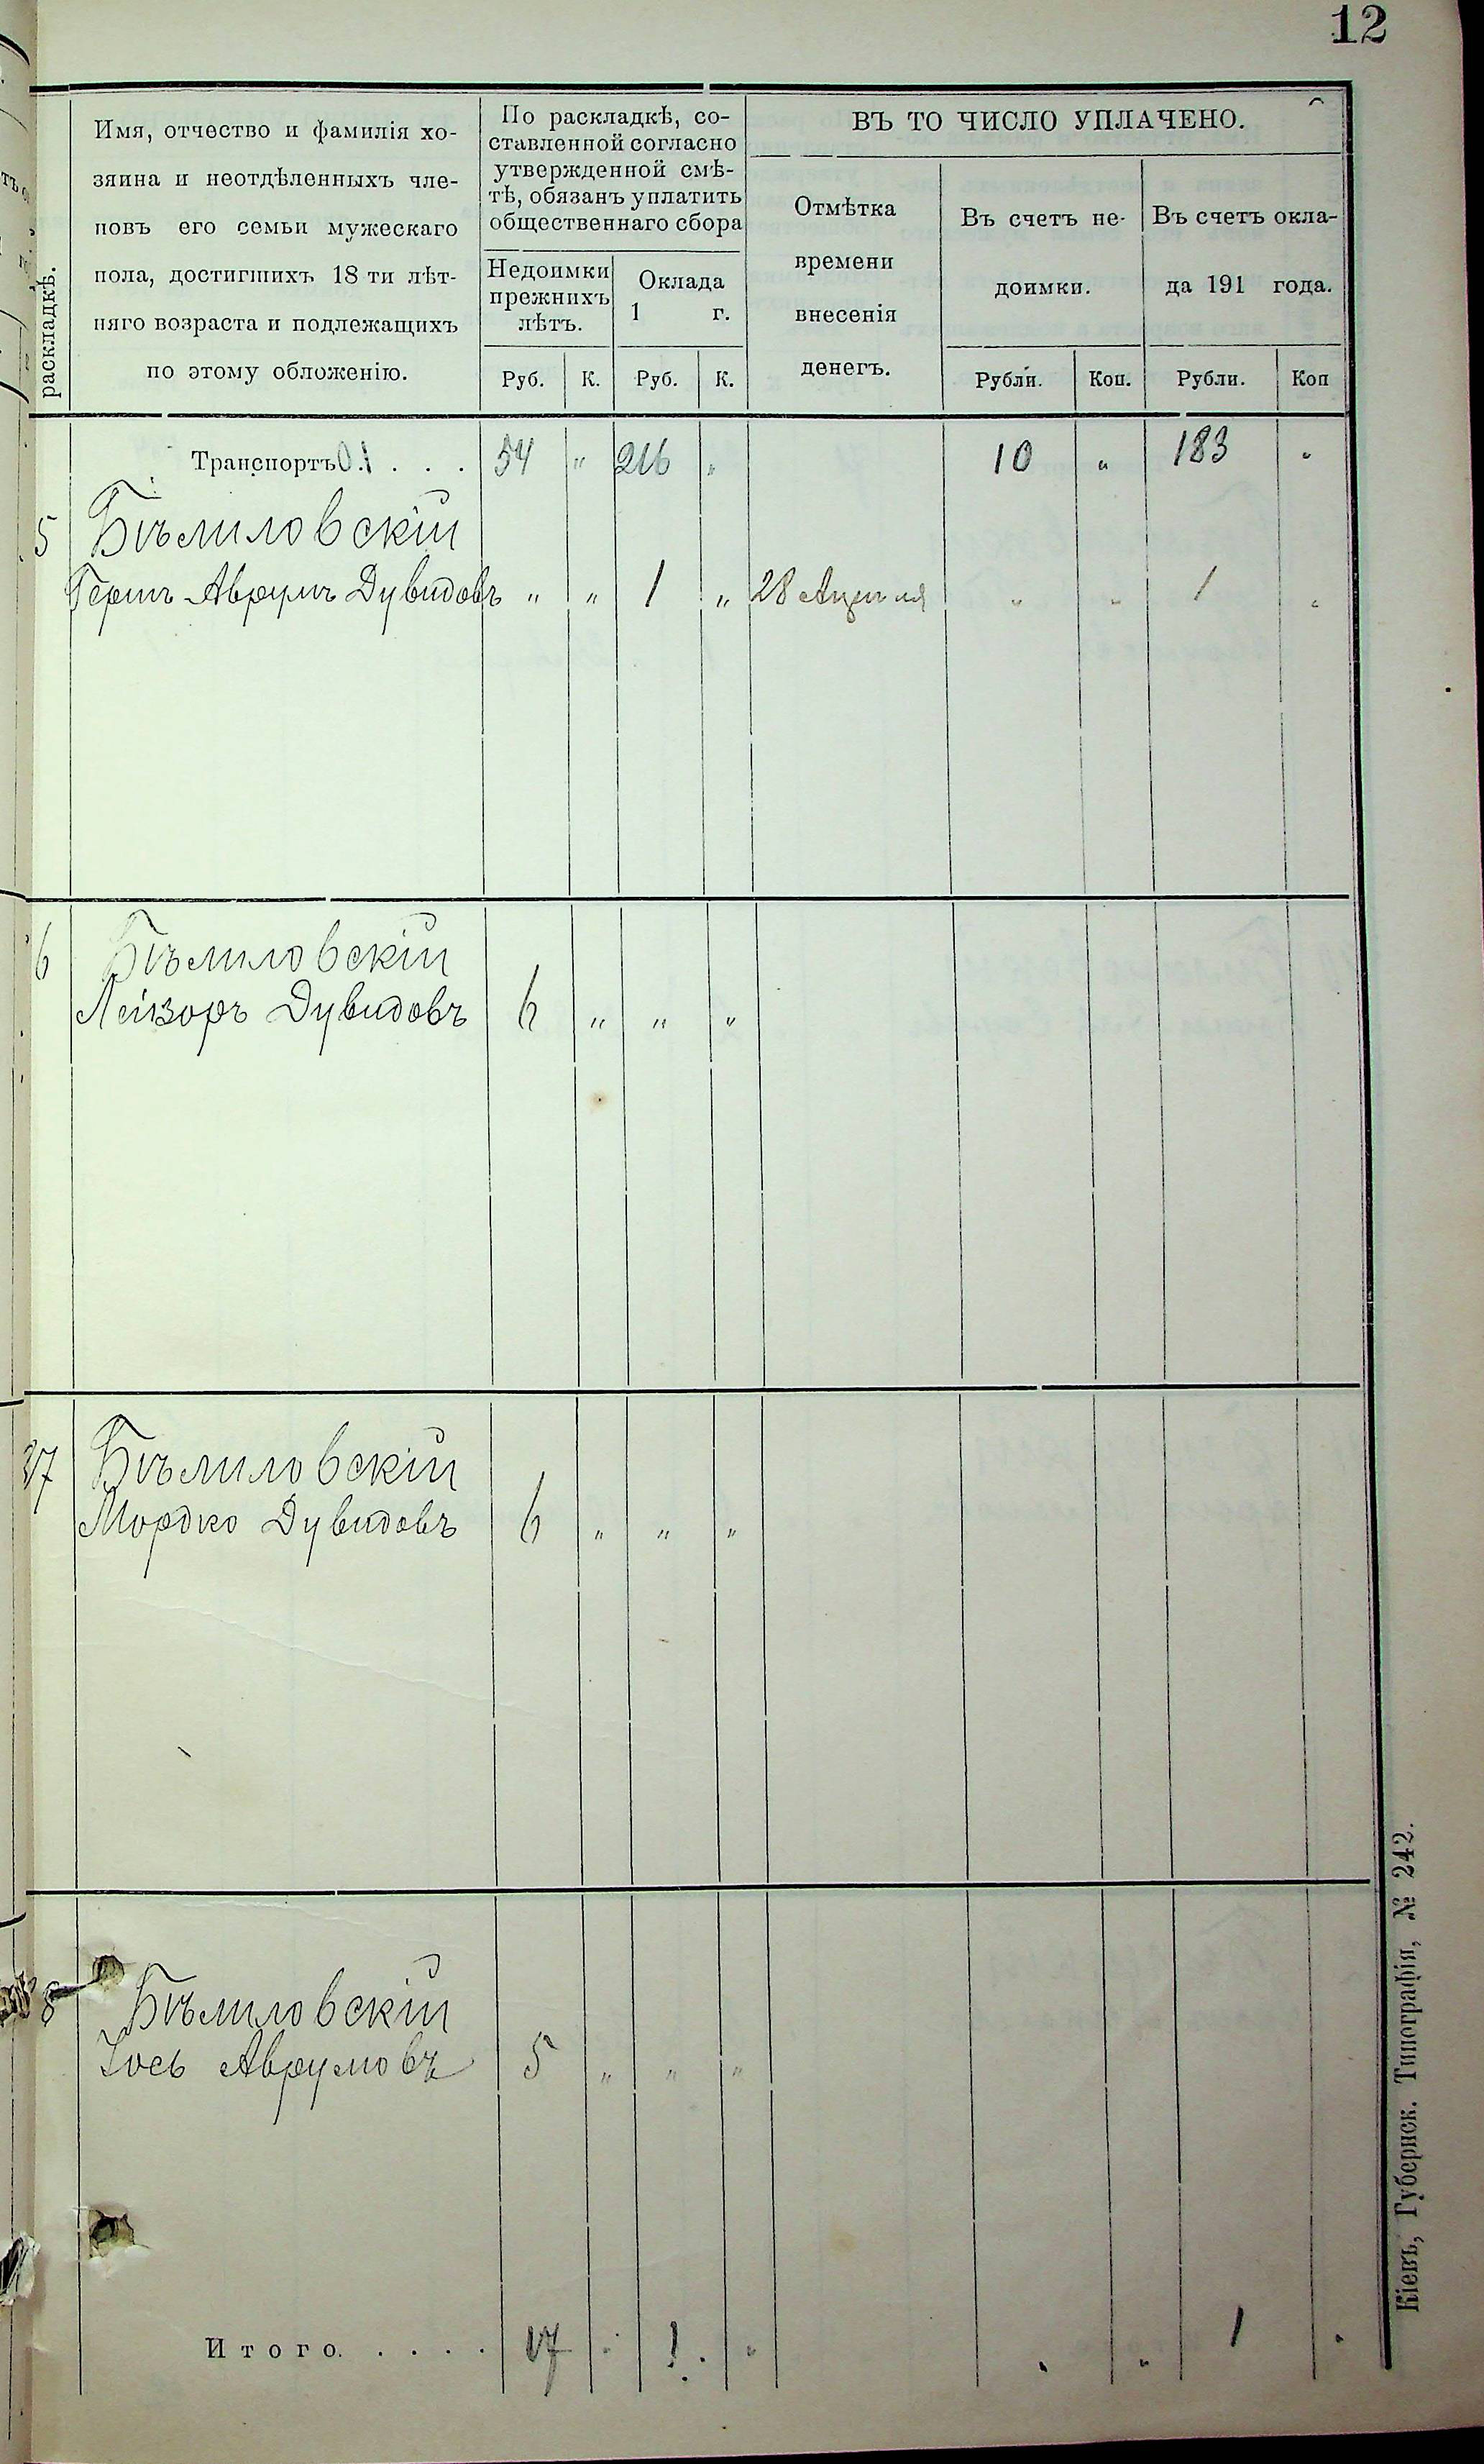 12
раскладкѣ.
Имя, отчество и фамилія хо-
зяина и неотдѣленныхъ чле-
новъ его семьи мужескаго
пола, достигшихъ 18 ти лѣт-
няго возраста и подлежащихъ
по этому обложенію.
По раскладкѣ, со-
ставленной согласно
утвержденной смѣ-
тѣ, обязанъ уплатить
общественнаго сбора
Недоимки
прежнихъ
лѣтъ.
Оклада
1 г.
Руб. К. Руб. К.
ВЪ ТО ЧИСЛО УПЛАЧЕНО.
Отмѣтка
времени
внесенія
денегъ.
Въ счетъ не-
доимки.
Рубли. Коп.
Въ счетъ окла-
да 191 года.
Рубли. Коп
Транспортъ . . . 54 " 216 " 10 " 183 "
5 Бѣлиловскій
Гершъ-Аврумъ Дувидовъ " " 1 " 28 Апреля " " 1 "
6 Бѣлиловскій
Лейзоръ Дувидовъ 6 " " "
37 Бѣлиловскій
Мордко Дувидовъ 6 " " "
8 Бѣлиловскій
Іось Аврумовъ 5 " " "
Итого. . . . . 17 " 1 " " " 1 "
Кіевъ, Губернск. Типографія, № 242.